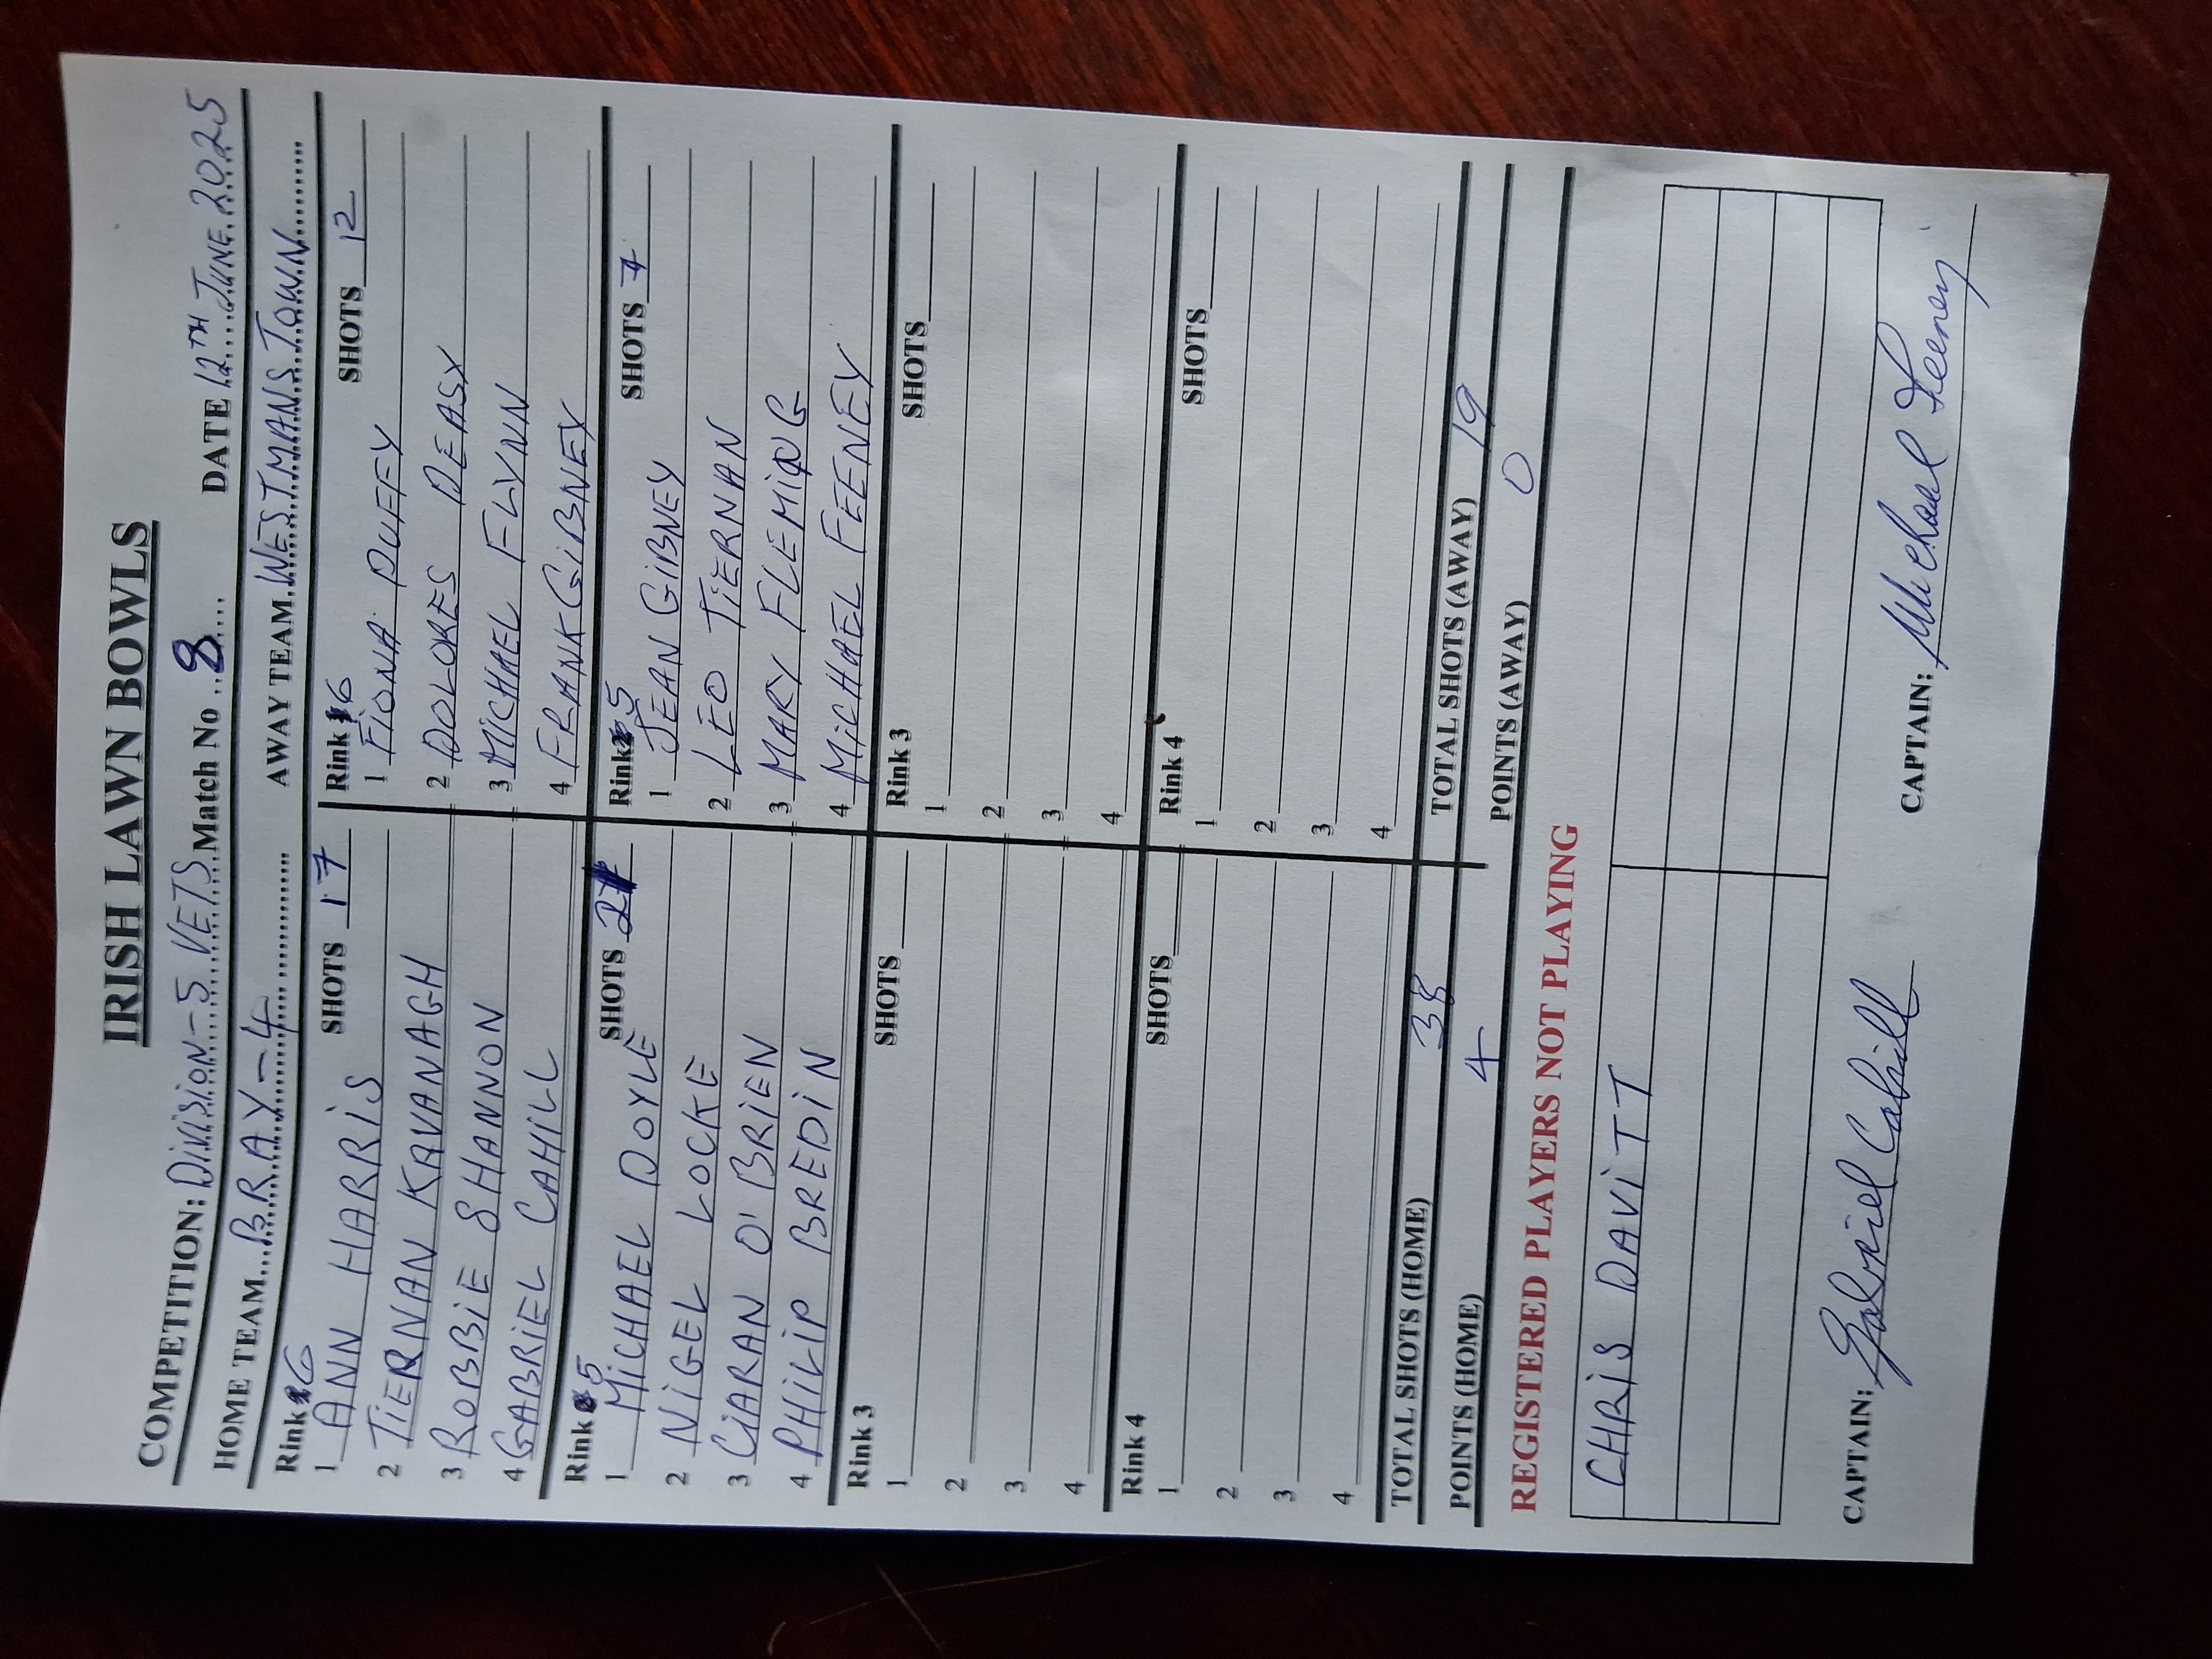 IRISH LAWN BOWLS
COMPETITION: DIVISION-5 VETS Match No 8 DATE 12TH JUNE 2025
HOME TEAM BRAY-4 AWAY TEAM WESTMANSTOWN
Rink 6 SHOTS 17 Rink 6 SHOTS 12
1 ANN HARRIS 1 FIONA DUFFY
2 TIERNAN KAVANAGH 2 DOLORES DEASY
3 ROBBIE SHANNON 3 MICHAEL FLYNN
4 GABRIEL CAHILL 4 FRANK GIBNEY
Rink 5 SHOTS 21 Rink 5 SHOTS 7
1 MICHAEL DOYLE 1 JEAN GIBNEY
2 NIGEL LOCKE 2 LEO TIERNAN
3 CIARAN O'BRIEN 3 MARY FLEMING
4 PHILIP BREDIN 4 MICHAEL FEENEY
Rink 3 SHOTS Rink 3 SHOTS
1 1
2 2
3 3
4 4
Rink 4 SHOTS Rink 4 SHOTS
1 1
2 2
3 3
4 4
TOTAL SHOTS (HOME) 38 TOTAL SHOTS (AWAY) 19
POINTS (HOME) 4 POINTS (AWAY) 0
REGISTERED PLAYERS NOT PLAYING
CHRIS DAVITT
CAPTAIN: Gabriel Cahill CAPTAIN: Michael Feeney